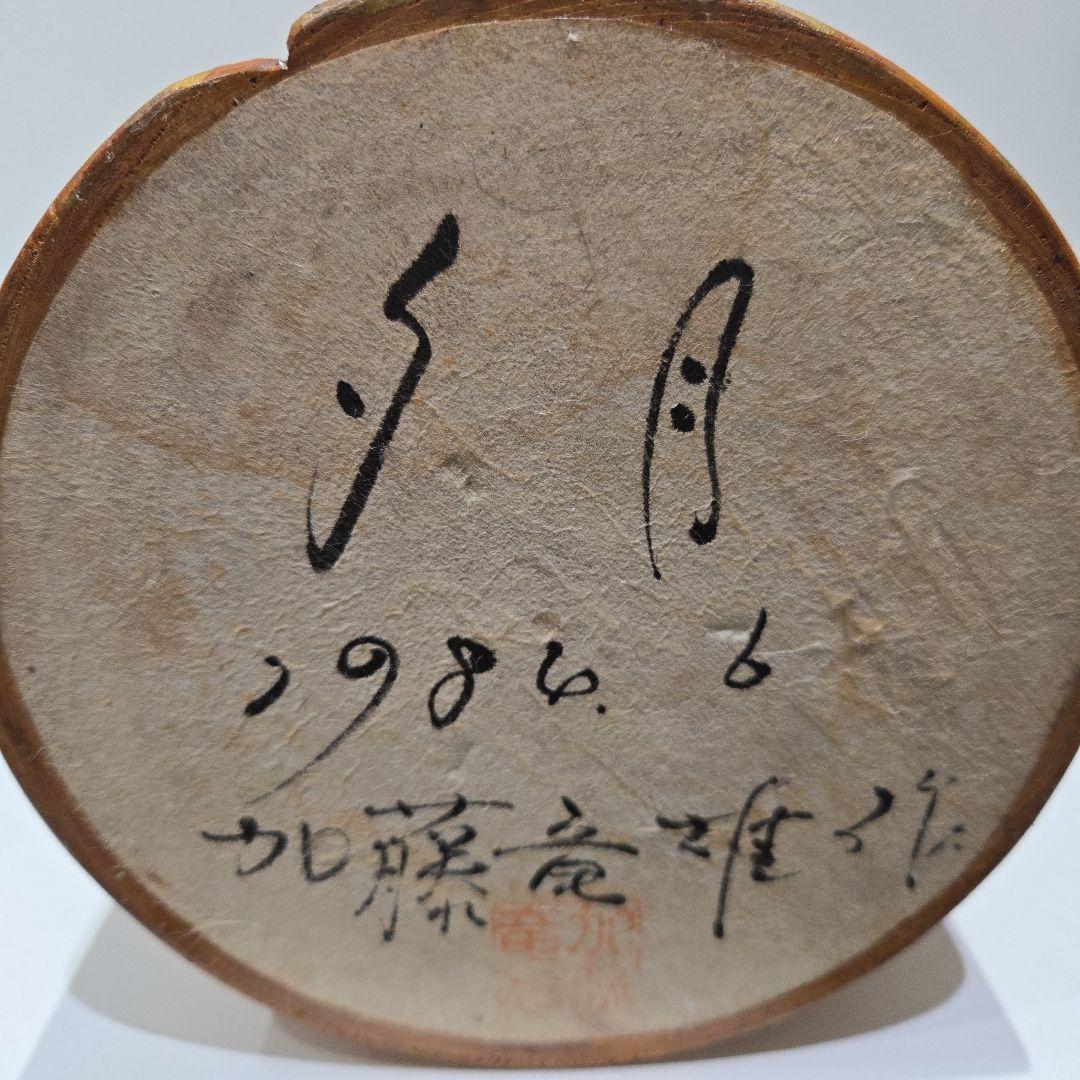 夕月
1986. 6
加藤竜雄作
加
竜